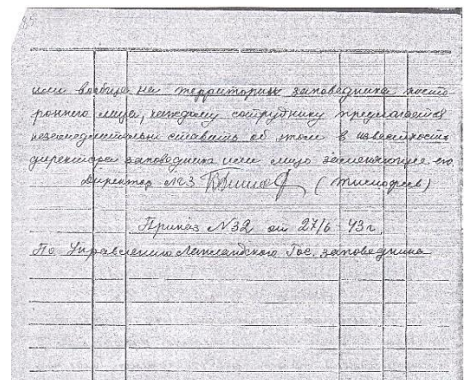 или вообще на территории заповедника посто-
роннего лица, каждому сотруднику предлагается
незамедлительно ставить об этом в известность
директора заповедника или лицо заменяющее его
Директор ЛГЗ (Тимофеев)
Приказ N32 от 27/6 43 г.
По Управлению Лапландского Гос. заповедника